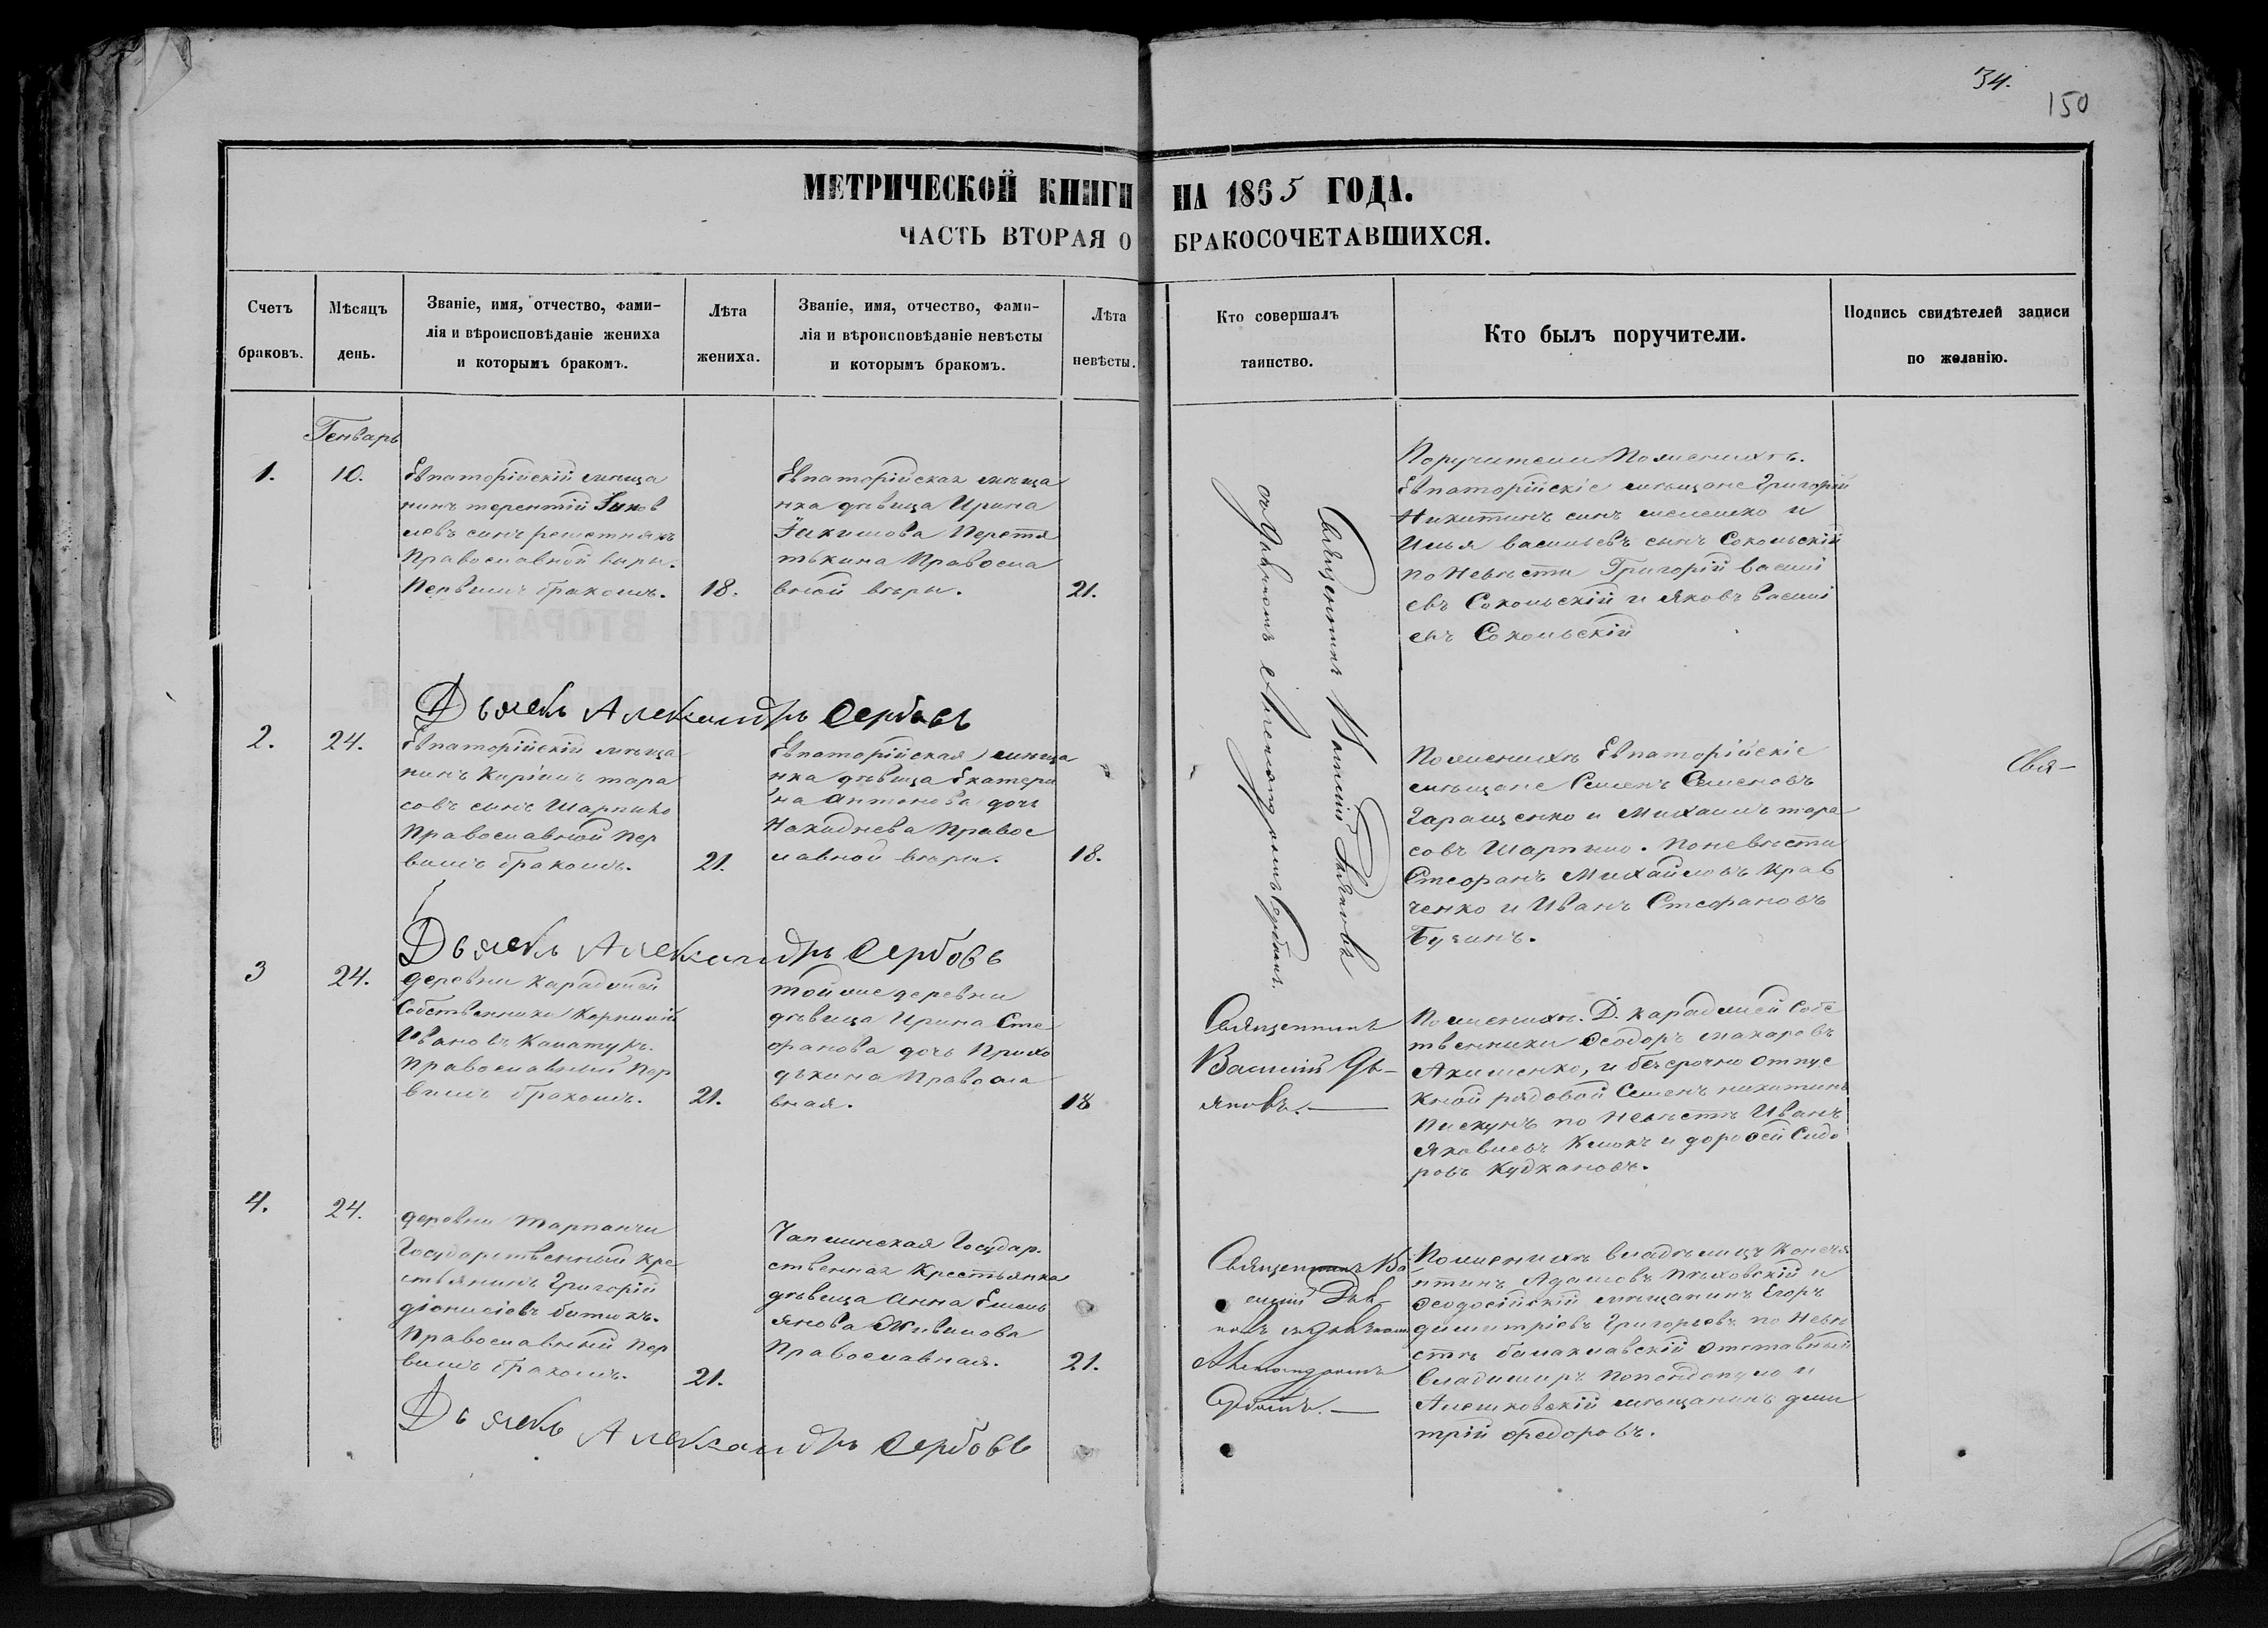 34.
150
МЕТРИЧЕСКОЙ КНИГИ НА 1865 ГОДА.
ЧАСТЬ ВТОРАЯ О БРАКОСОЧЕТАВШИХСЯ.
Счетъ браковъ.
Мѣсяцъ день.
Званіе, имя, отчество, фами-
лія и вѣроисповѣданіе жениха
и которымъ бракомъ.
Лѣта жениха.
Званіе, имя, отчество, фами-
лія и вѣроисповѣданіе невѣсты
и которымъ бракомъ.
Лѣта невѣсты.
Кто совершалъ
таинство.
Кто былъ поручители.
Подпись свидѣтелей записи
по желанію.
Генварь
1.
10.
Евпаторійскій мѣща
нинъ терентій Яков
левъ сынъ решетнякъ
Православной вѣры.
Первымъ бракомъ.
18.
Евпаторійская мѣща
нка дѣвица Ирина
Екимова Перетя
тькина Правосла
вной вѣры.
21.
Священникъ Василій
съ Дьячкомъ Александромъ Сербовымъ.
Поручители По женихѣ.
Евпаторійскіе мѣщане Григорій
Никитинъ сынъ и
Илья васильевъ сынъ Сокольскій
по Невѣсти Григорій васил
евъ Сокольскій и Яковъ васил
евъ Сокольскій
Дьячекъ Александръ Сербовъ
2.
24.
Евпаторійскій мѣща
нинъ Кирилъ тара
совъ сынъ Шарпило
Православной Пер
вымъ бракомъ.
21.
Евпаторійская мѣща
нка дѣвица Екатери
на Антонова дочь
Находнева Правос
лавной вѣры.
18.
По женихѣ Евпаторійскіе
мѣщане Семенъ Семеновъ
Гаращенко и Михаилъ тара
совъ Шарпило. По невѣсти
Стефанъ Михайловъ Крав
ченко и Иванъ Стефановъ
Бузинъ.
Свя-
Дьячекъ Александръ Сербовъ
3
24.
деревни Караджей
Собственникъ Корнилій
Ивановъ Калатуръ.
Православный Пер
вымъ бракомъ.
21.
той же деревни
дѣвица Ирина Сте
фанова дочь Прихо
дькина Правосла
вная.
18
Священникъ
Василій Дь-
яковъ.
По женихѣ. Д. Караджей Собс
твенники Ѳеодоръ макаровъ
Акименко, и безсрочно отпус
кной рядовой Семенъ никитинъ
Пискунъ по Невѣстѣ Иванъ
Яковлевъ Клюкъ и дорофей Сидо
ровъ Кудкановъ.
4.
24.
деревни Тарпанчи
Государственный Кре
стьянинъ Григорій
діонисіевъ битюкъ.
Православный Пер
вымъ бракомъ.
21.
Чаплинская Государ.
ственная Крестьянка
дѣвица Анна Емель
янова Живилова
Православная.
21.
Священникъ Ва-
силій Дья-
ковъ съ дьячкомъ
Александромъ
По женихѣ владѣлецъ Конста
нтинъ Адамовъ Пѣховскій и
Ѳеодосійскій мѣщанинъ Егоръ
димитріевъ Григорьевъ по Невѣ
стѣ балаклавскій отставный
владимиръ Попандопуло и
Алешковскій мѣщанинъ дми
трій Федоровъ.
Дьячекъ Александръ Сербовъ